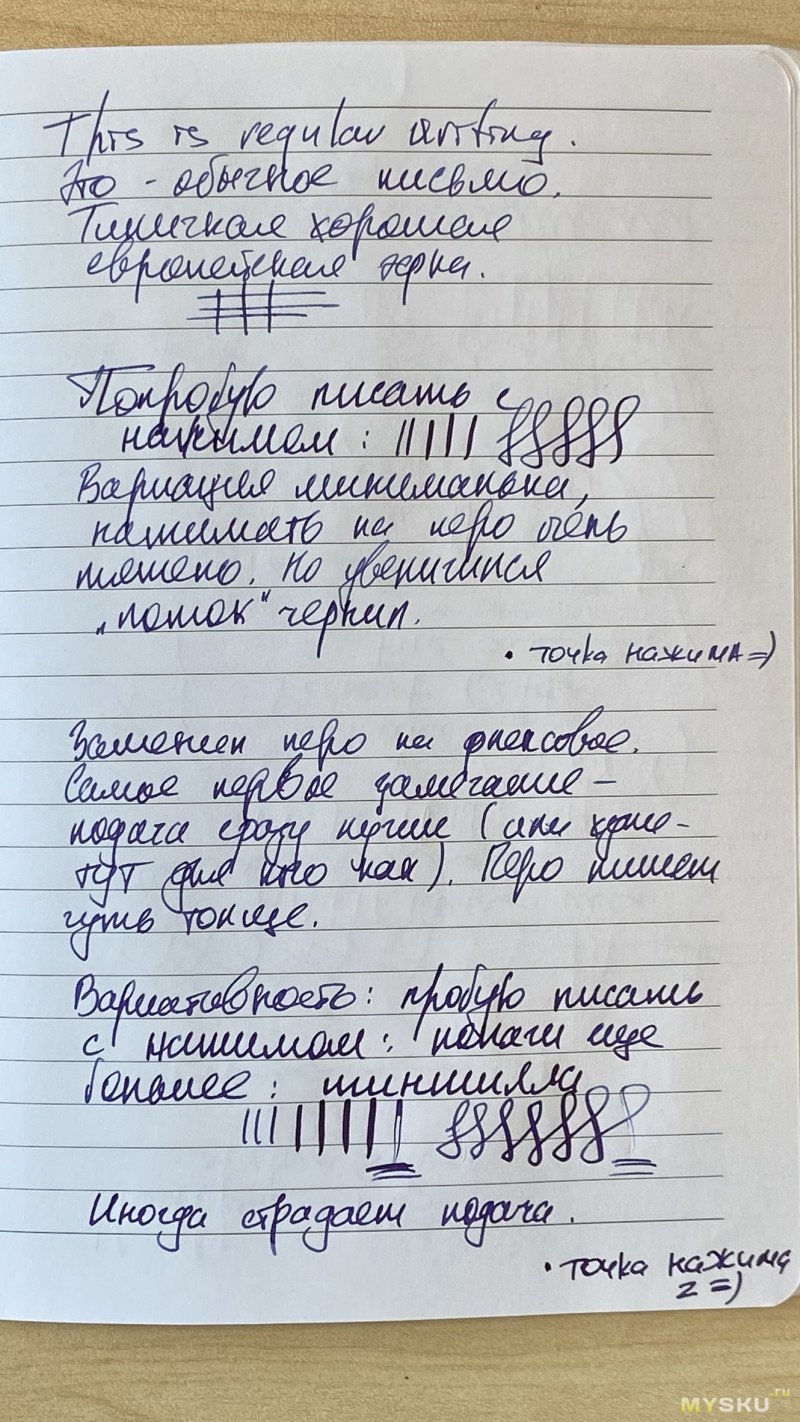 This is regular writing.
Это - обычное письмо.
Типичная хорошая
европейская ф-ка.
Попробую писать с
нажимом:
Вариация минимальна,
нажимать на перо очень
тяжело. Но увеличился
„поток" чернил.
• точка нажима =)
Заменен перо на флексовое.
Самое первое замечание -
подача сразу лучше (или хуже -
тут для кого как). Перо пишет
чуть толще.
Вариативность: пробую писать
с нажимом: подачи еще
больше: шиншилла
Иногда страдает подача.
• точка нажима
2 =)
MYSKU.ru